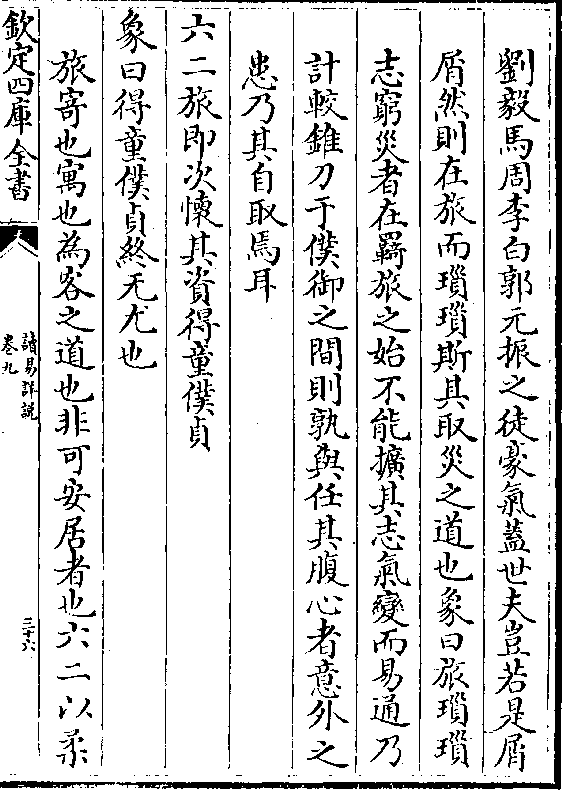 劉毅馬周李白郭元振之徒豪氣蓋世夫豈若是屑
屑然則在旅而瑣瑣斯其取災之道也象曰旅瑣瑣
志窮災者在羇旅之始不能擴其志氣變而易通乃
計較錐刀于僕御之間則孰與任其腹心者意外之
患乃其自取焉耳
六二旅即次懷其資得童僕貞
象曰得童僕貞終无尤也
旅寄也寓也為客之道也非可安居者也六二以柔
欽定四庫全書
讀易詳說
卷九
三十六